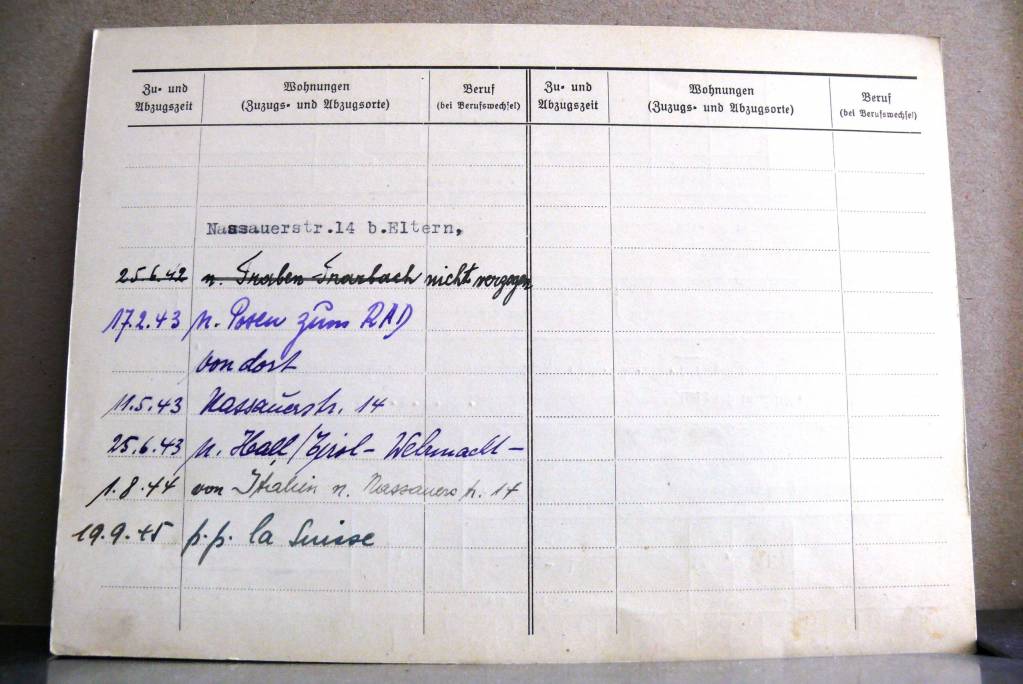 Zu- und Abzugszeit
Wohnungen (Zuzugs- und Abzugsorte)
Beruf (bei Berufswechsel)
Zu- und Abzugszeit
Wohnungen (Zuzugs- und Abzugsorte)
Beruf (bei Berufswechsel)
Nassauerstr.14 b.Eltern,
25.6.42 n. Traben Trarbach nicht verzogen
17.2.43 n. Posen zum RAD
von dort
11.5.43 Nassauerstr. 14
25.6.43 n. Hall/Tirol - Wehrmacht -
1.8.44 von Italien n. Nassauerstr. 14
19.9.45 p.p. la Suisse